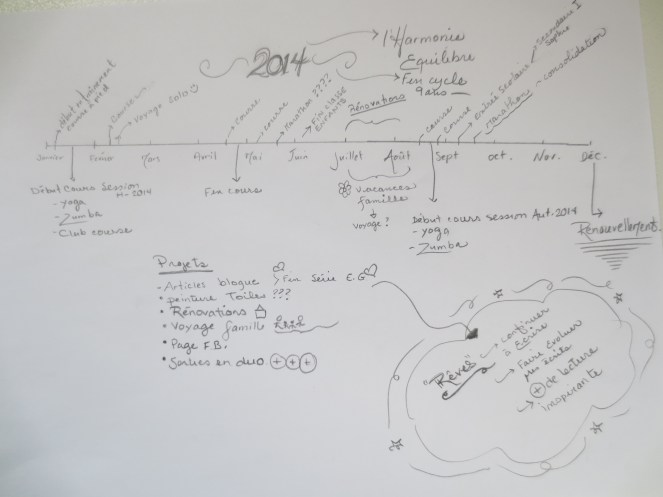 2014
l'Harmonie
Equilibre
Fin cycle
9 ans
Début entraînement
course à pied
Course
Voyage Solo
Course
course
Marathon ????
Fin classe
Enfants
Rénovations
course
Course
Entrée scolaire
Secondaire I
Sophie
Marathon - consolidation
Janvier
Février
Mars
Avril
Mai
Juin
Juillet
Août
Sept
Oct.
Nov.
Déc.
Début Cours Session
H-2014
- Yoga
- Zumba
- Club course
Fin cours
Vacances
famille
voyage ?
Début cours session Aut. 2014
- yoga
- Zumba
Renouvellements
Projets
- Articles blogue > Fin Série E.G
• peinture Toiles ???
• Rénovations
• Voyage famille
• Page F.B.
• Sorties en duo + + +
"Rêves"
continuer
à écrire
Faire évoluer
mes écrits
+ de lecture
inspirante